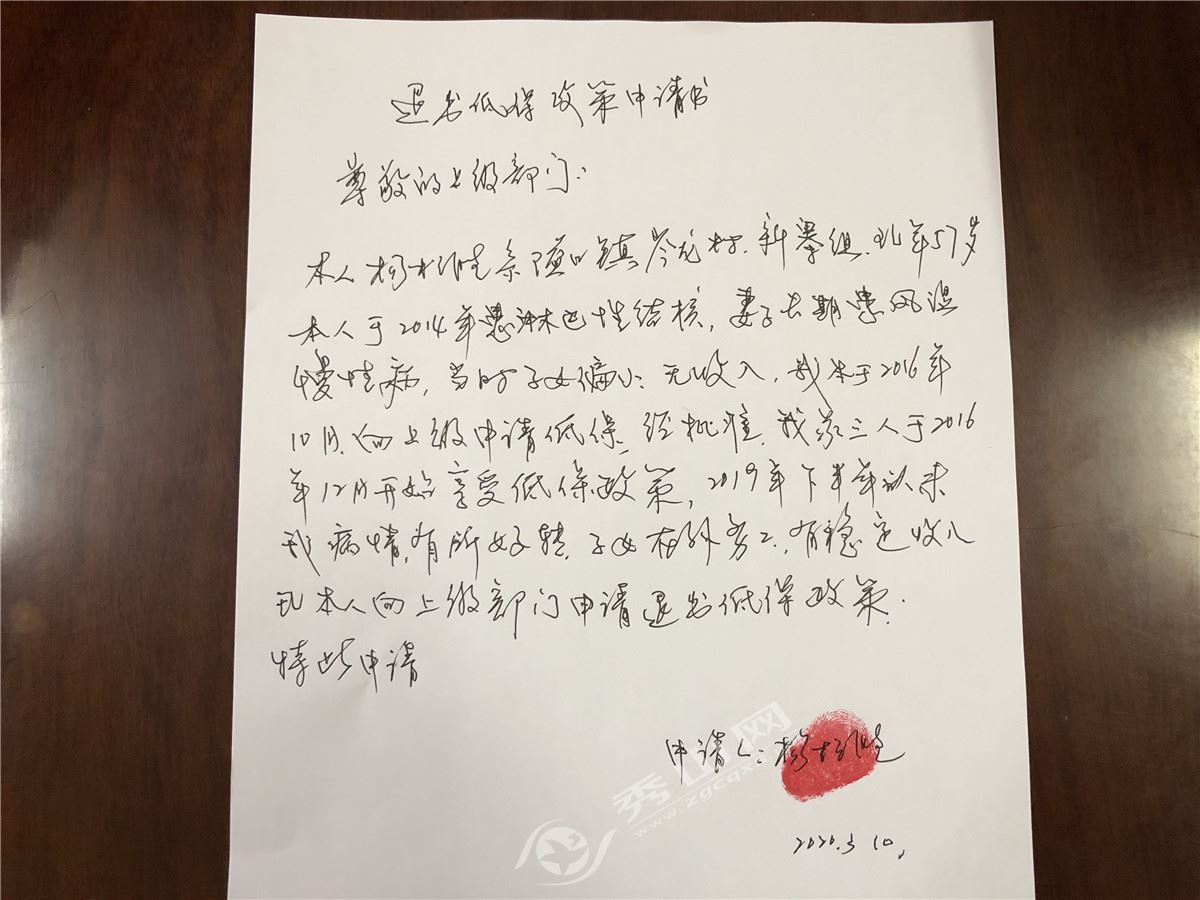 退出低保政策申请书
尊敬的上级部门:
本人杨 系隘口镇岑龙村.新寨组.现年57岁
本人于2014年患淋巴性结核,妻子长期患风湿
慢性病,当时子女偏小:无收入,我本于2016年
10月.向上级申请低保.经批准.我家三人于2016
年12月开始享受低保政策,2019年下半年以来
我病情有所好转.子女在外务工.有稳定收入
现本人向上级部门申请退出低保政策.
特此申请
申请人:杨
2020.3 10.
秀山网
www.zgcqxs